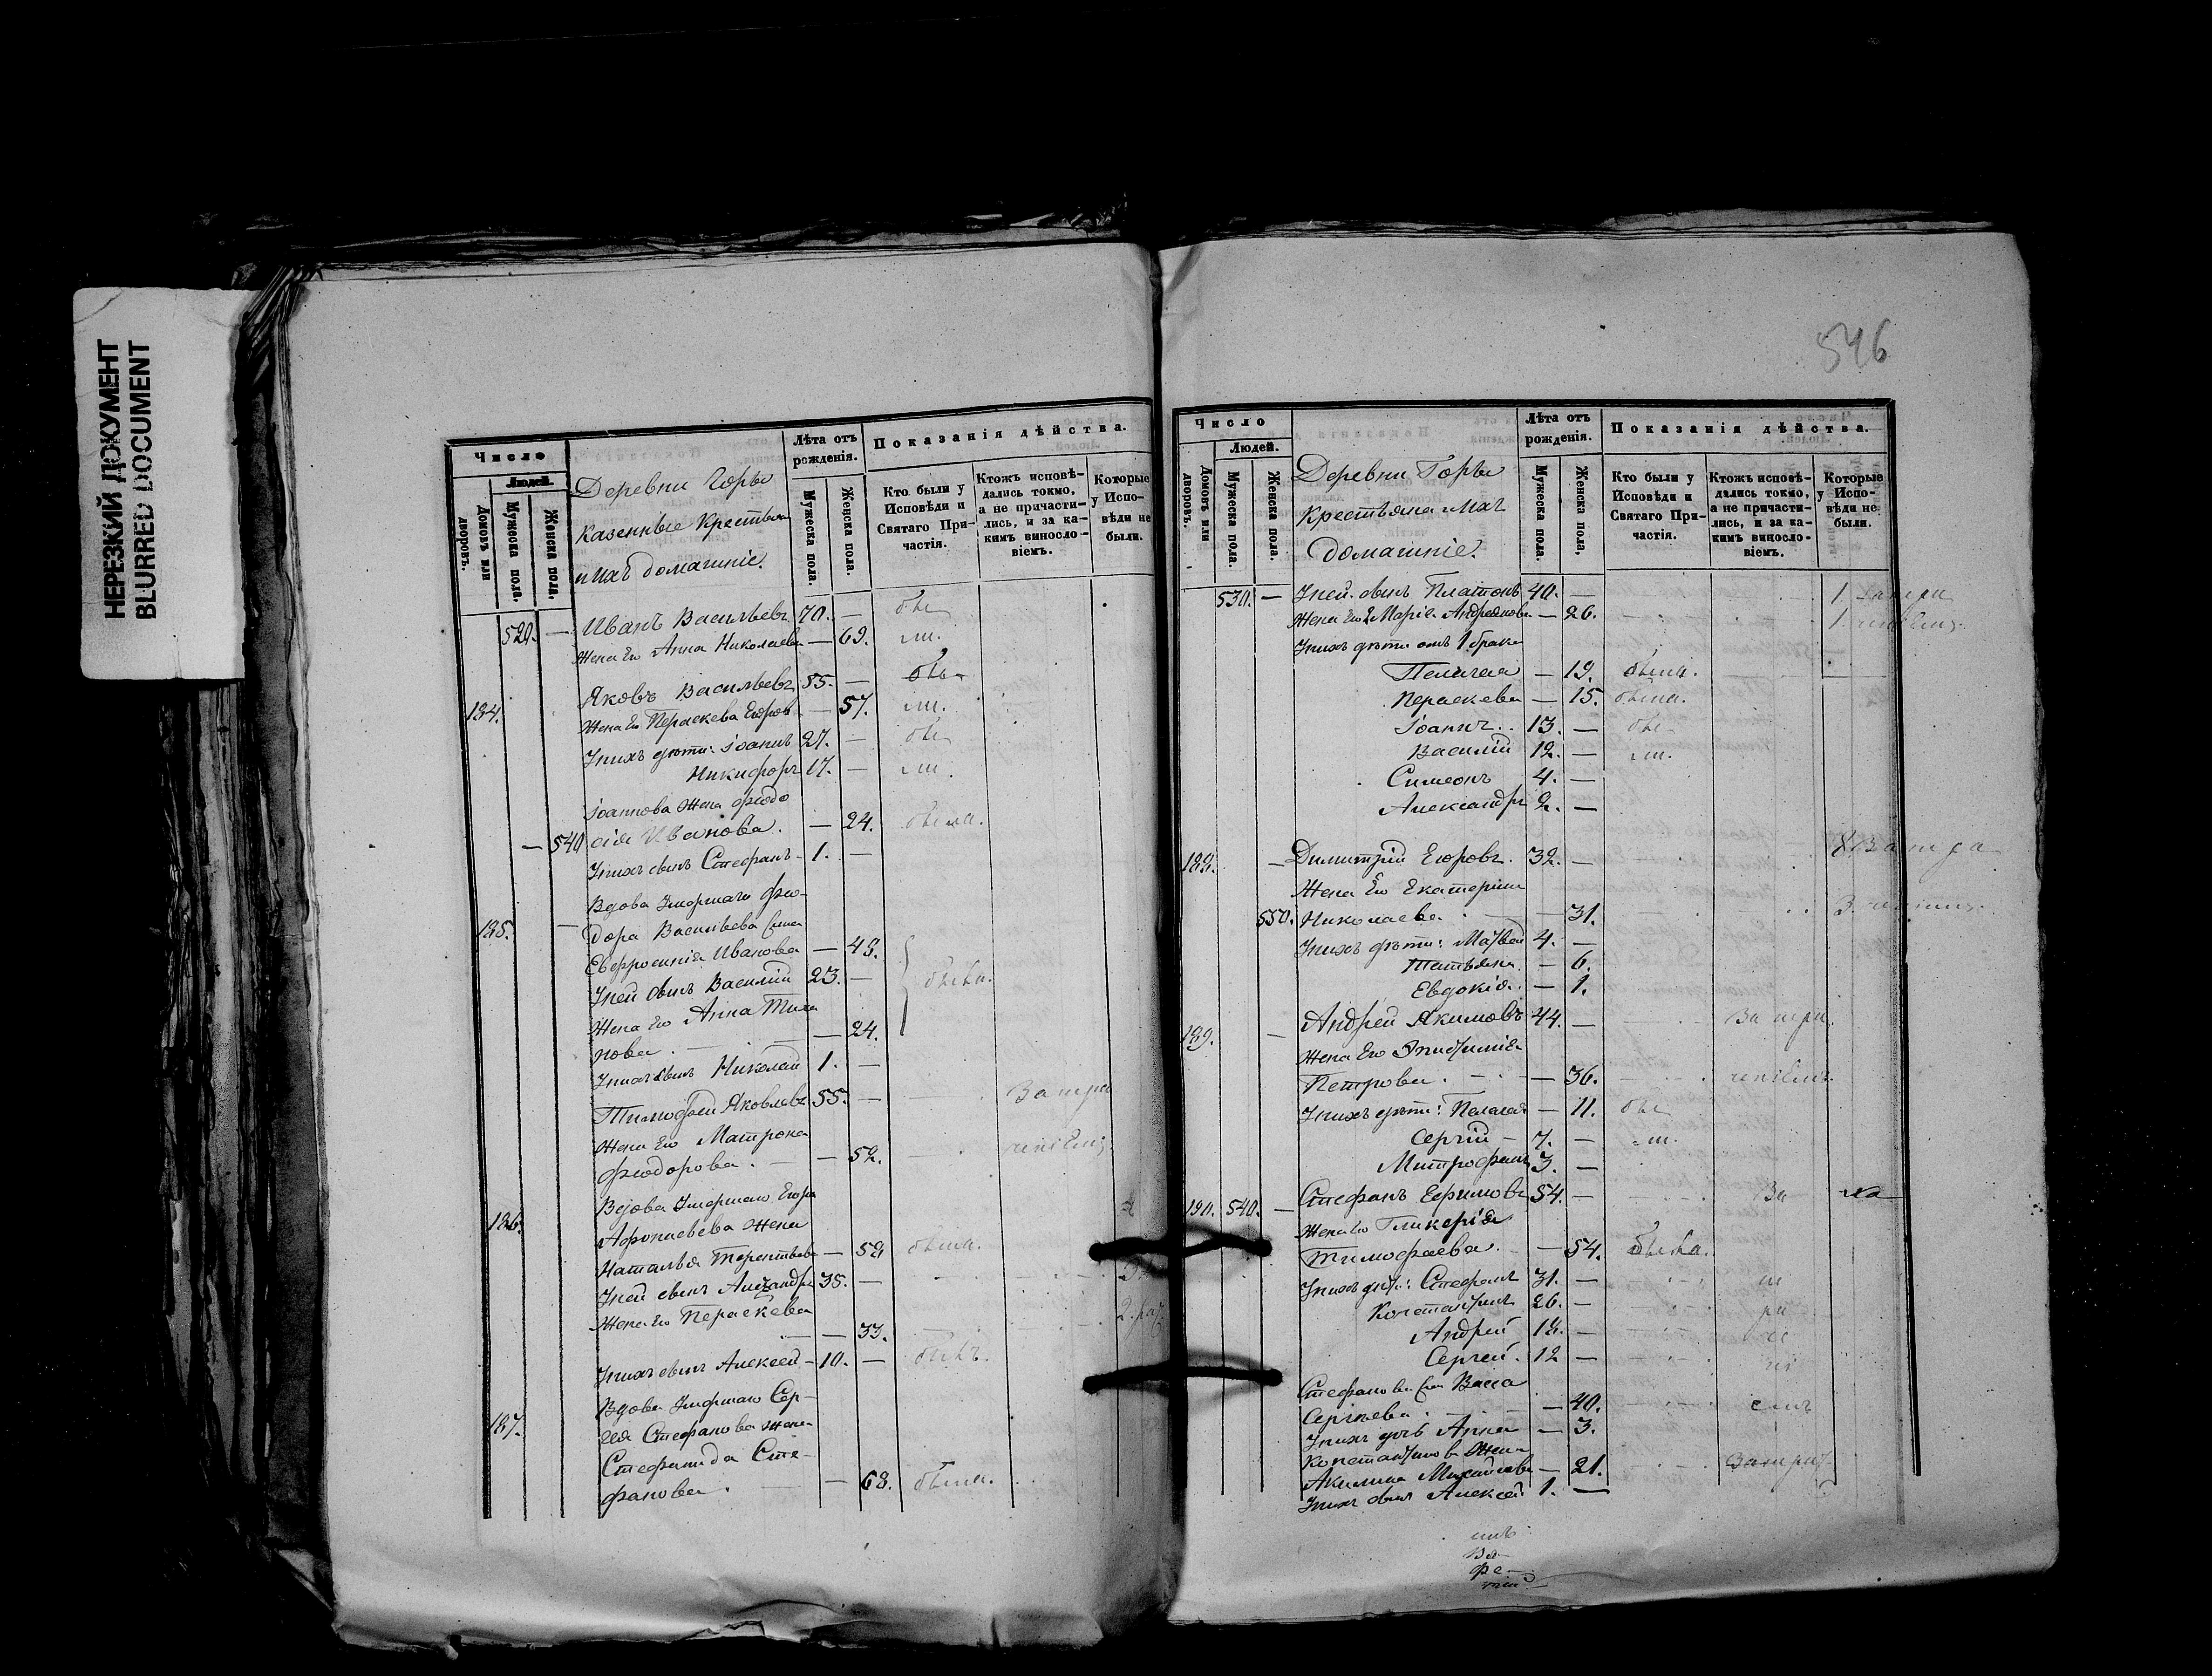 НЕРЕЗКИЙ ДОКУМЕНТ
BLURRED DOCUMENT
Число
Людей.
Домовъ или дворовъ.
Мужеска пола.
Женска пола.
Деревни Горы
казенные Крестьяне
и ихъ домашніе.
Лѣта отъ рожденія.
Мужеска пола.
Женска пола.
Показанія дѣйства.
Кто были у Исповѣди и Святаго Причастія.
Ктожъ исповѣдались токмо, а не причастились, и за какимъ винословіемъ.
Которые у Исповѣди не были.
520. — Иванъ Васильевъ 70. —
Жена Его Анна Николаева — 69.
184. Яковъ Васильевъ 55. —
Жена Его Пераскева Егоров — 57.
У нихъ дѣти: Іоаннъ 27. —
Никифоръ 17. —
Іоаннова Жена Феодо
— 540 сія Иванова. — 24. были.
У нихъ сынъ Стефанъ 1. —
Вдова Умершаго Фео-
185. — дора Васильева
Евфросинія Иванова — 48.
У ней сынъ Василій 23. — были.
Жена Его Анна Тихо
нова. — 24.
У нихъ сынъ Николай 1. —
Тимофей Яковлевъ 55. —
Жена Его Матрона
Феодорова. — 52.
Вдова Умершаго Егора
186. Афонасьева Жена
Наталья Терентьева — 59 была.
У ней сынъ Александръ 35. —
Жена Его Пераскева
— 33.
У нихъ сынъ Алексей 10. — былъ.
Вдова Умершаго Сер-
187. гея Стефанова Жена
Стефанида Сте-
фанова. — 68. была.
546
Число
Людей.
Домовъ или дворовъ.
Мужеска пола.
Женска пола.
Деревни Горы
Крестьяне ихъ
домашніе.
Лѣта отъ рожденія.
Мужеска пола.
Женска пола.
Показанія дѣйства.
Кто были у Исповѣди и Святаго Причастія.
Ктожъ исповѣдались токмо, а не причастились, и за какимъ винословіемъ.
Которые у Исповѣди не были.
530. — У ней сынъ Платонъ 40. —
Жена Его 2 Марія Андреянова — 26.
У нихъ дѣти отъ 1 брака
Пелагея — 19. была.
Пераскева — 15. была.
Іоаннъ 13. —
Василій 12. —
Симеонъ 4. —
Александръ 2. —
188. — Димитрій Егоровъ. 32. —
Жена Его Екатерина
550. Николаева — 31.
У нихъ дѣти: Матвей 4. —
Татьяна. — 6.
Евдокія. — 1.
189. — Андрей Якимовъ 44. —
Жена Его
Петрова. — 36.
У нихъ дѣти: Пелагея — 11.
Сергій 7. —
Митрофанъ 3. —
190. 540. — Стефанъ Ефимовъ 54. —
Жена Его Гликерія
Тимофеева. — 54. была.
У нихъ дѣт: Стефанъ 31. —
Константинъ 26. —
Андрей 18. —
Сергей. 12 —
Стефанова Васса
Сергіева. — 40.
У нихъ дочь Анна — 3.
Константинова Жена
Акилина Михайлова — 21.
У нихъ сынъ Алексей 1. —